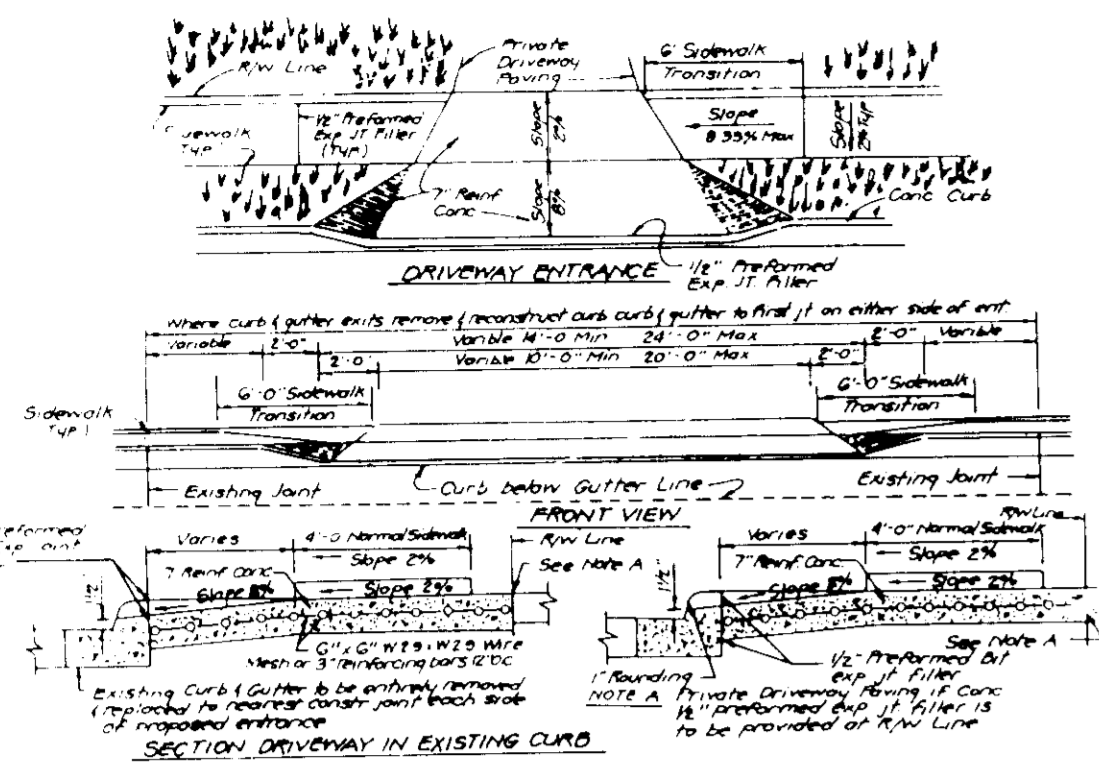 Private
Driveway
Paving
6' Sidewalk
Transition
R/W Line
1/2" Preformed
Exp. JT. Filler
(TYP)
Slope
2%
Slope
8.33% Max
Slope
2% Typ
7" Reinf
Conc
Slope
8%
Conc Curb
DRIVEWAY ENTRANCE
1/2" Preformed
Exp. JT. Filler
Where curb & gutter exits remove & reconstruct curb curb & gutter to first jt on either side of ent.
Variable
2'-0"
Varible 14'-0 Min 24'-0" Max
2'-0"
Variable
2'-0"
Varible 10'-0" Min 20'-0" Max
2'-0"
6'-0" Sidewalk
Transition
6'-0" Sidewalk
Transition
Sidewalk
Typ)
Existing Joint
Curb below Gutter Line
Existing Joint
FRONT VIEW
Varies
4'-0 Normal Sidewalk
Slope 2%
R/W Line
See Note A
7 Reinf Conc
Slope 8%
Slope 2%
1 1/2
6" x 6" W2.9 x W2.9 Wire
Mesh or 3" reinforcing bars 12" O.C.
Existing Curb & Gutter to be entirely removed
& replaced to nearest constr joint each side
of proposed entrance
SECTION DRIVEWAY IN EXISTING CURB
Varies
4'-0" Normal Sidewalk
R/W Line
Slope 2%
7" Reinf Conc
Slope 8%
Slope 2%
1 1/2"
See Note A
1/2" Preformed Bit
exp jt filler
1" Rounding
NOTE A Private Driveway Paving if Conc
1/2" preformed exp. jt. filler is
to be provided at R/W Line